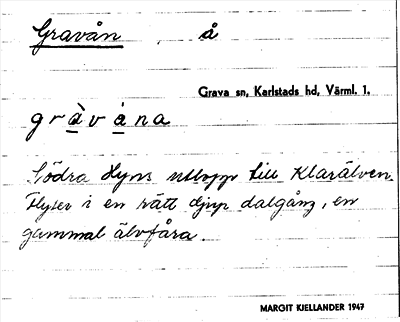 Gravån å
Grava sn, Karlstads hd, Värml. l.
gràvȧna
Södra Hyns utlopp till Klarälven.
Flyter i en rätt djup dalgång, en
gammal älvfåra.
MARGIT KJELLANDER 1947